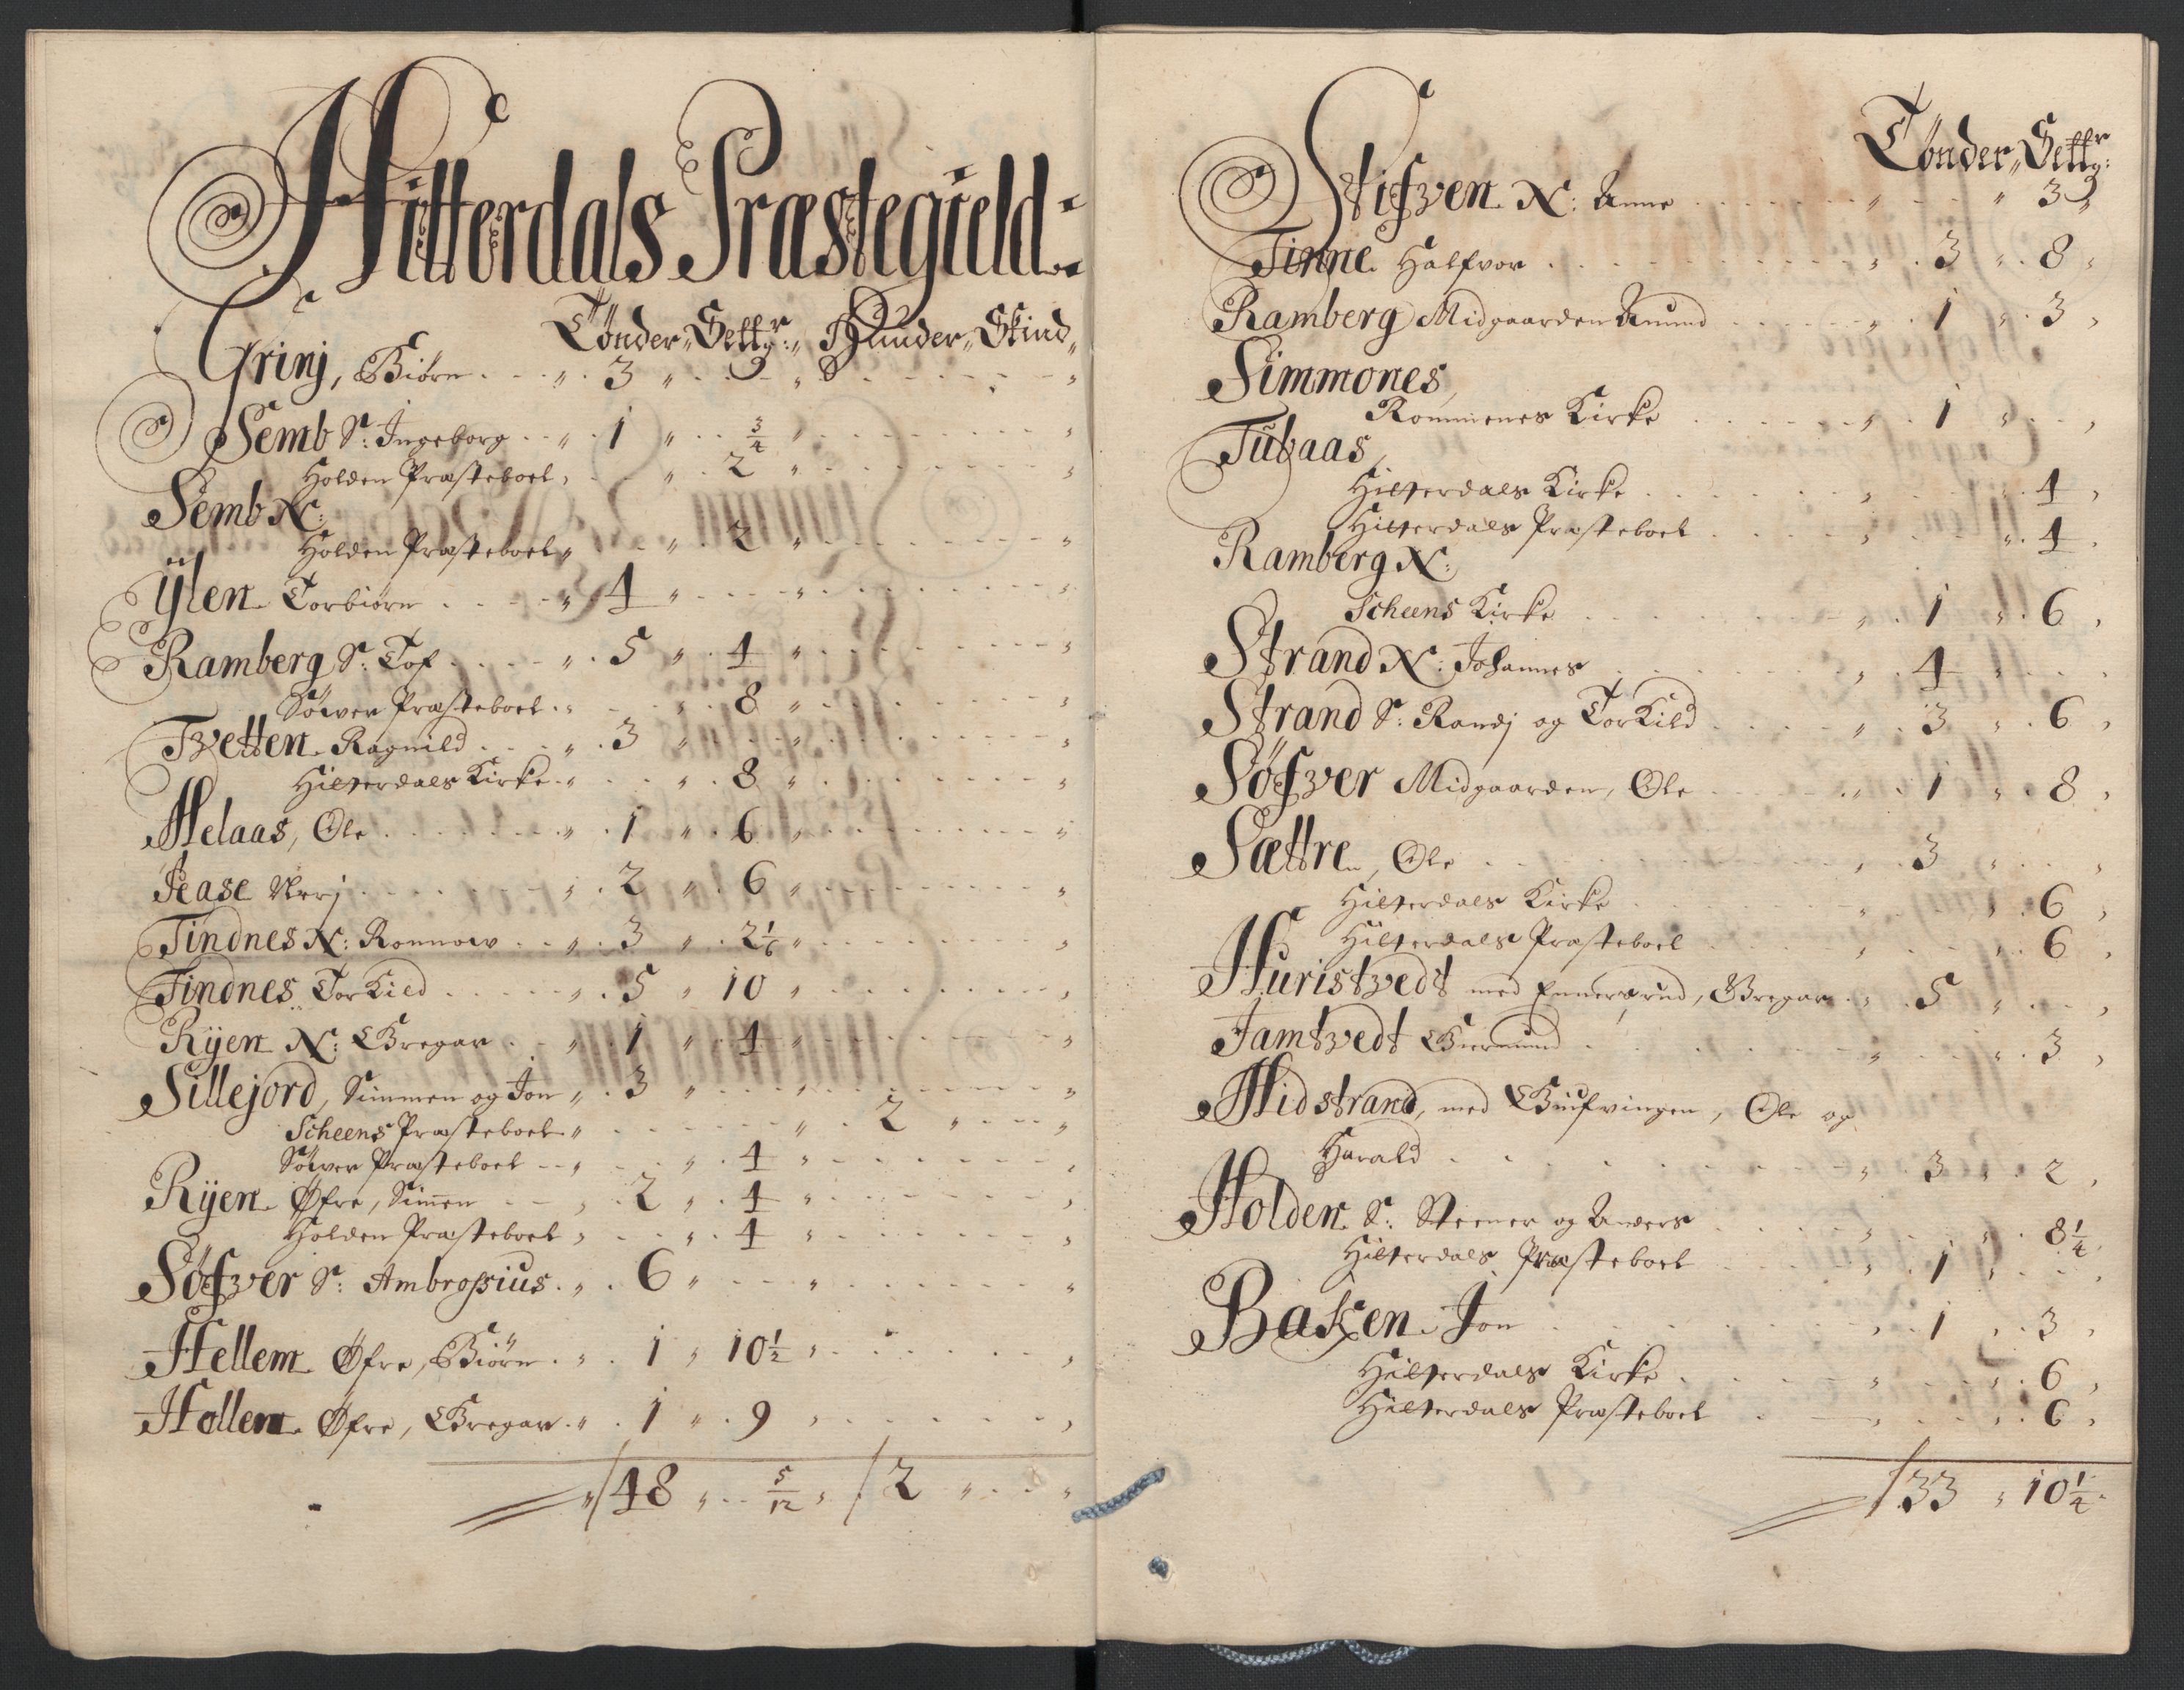 Hitterdals Præstegield:
Tønder, Settgr: Hunder, Skind
Grinj, Biørn 3
Semb Sr: Ingeborg 1 3/4
Holden Præsteboel 2
Semb N:
Holden Præsteboel 2
Ÿlen Torbiørn 4
Ramberg Sr: Tof 5 4
Søwer Præsteboel 8
Tvetten Ragnild 3
Hitterdals Kirke 8
Helaas, Ole 1 6
Jease Nerj 2 6
Tindnes N: Ronnow 3 2 1/6
Tindnes Torkild 5 10
Rÿen N: Gregar 1 4
Sillejord, Simmen og Jon 3
Scheens Præsteboel 2
Søwer Præsteboel 4
Rÿen Øfre, Simen 2 4
Holden Præsteboel 4
Søfver Sr: Ambrosius 6
Hellem Øfre, Biørn 1 10 1/2
Hollem Øfre, Gregar 1 9
48 5/12 2
Tønder, Settgr:
Stifven N: Anne 3
Tinne Halfvor 3 8
Ramberg Midgaarden Amund 1 3
Simmones
Rommenes Kirke 1
Tubaas,
Hitterdals Kirke 4
Hitterdals Præsteboel 4
Ramberg N:
Scheens Kirke 1 6
Strand N: Johannes 4
Strand Sr: Randj og Torkild 3 6
Søfver Midgaarden, Ole 1 8
Sættre, Ole 3
Hitterdals Kirke 6
Hitterdals Præsteboel 6
Huristvedt med Ennerærud, Gregar 5
Jamtvedt Giermund 3
Hidstrand, med Giufvingen, Ole og
Harald 3 2
Holden Sr: Steener og Anders 8 1/4
Hitterdals Præsteboel 1
Bakken Jon 1 3
Hitterdals Kirke 6
Hitterdals Præsteboel 6
33 10 1/4